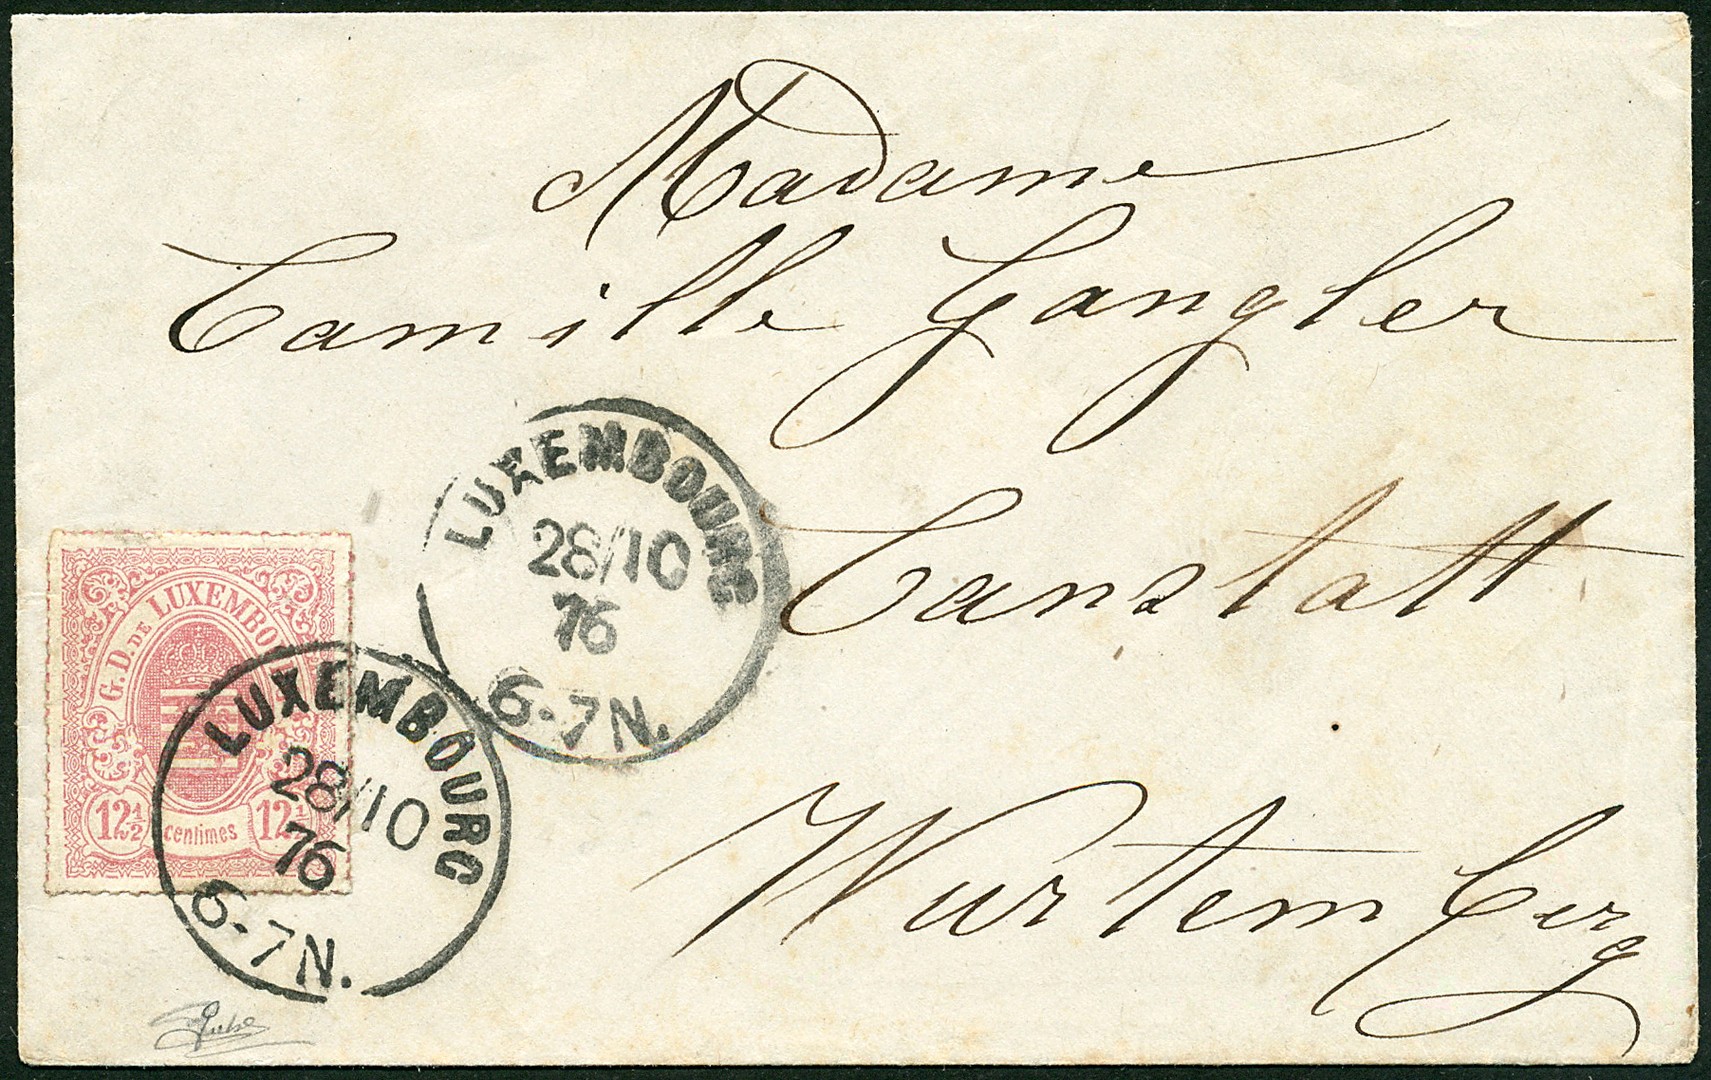 Madame
Camille Gangler
Canstatt
Wurtemberg
LUXEMBOURG
28/10
76
6-7N.
G. D. DE LUXEMBOURG
12½ centimes 12½
LUXEMBOURG
28/10
76
6-7N.